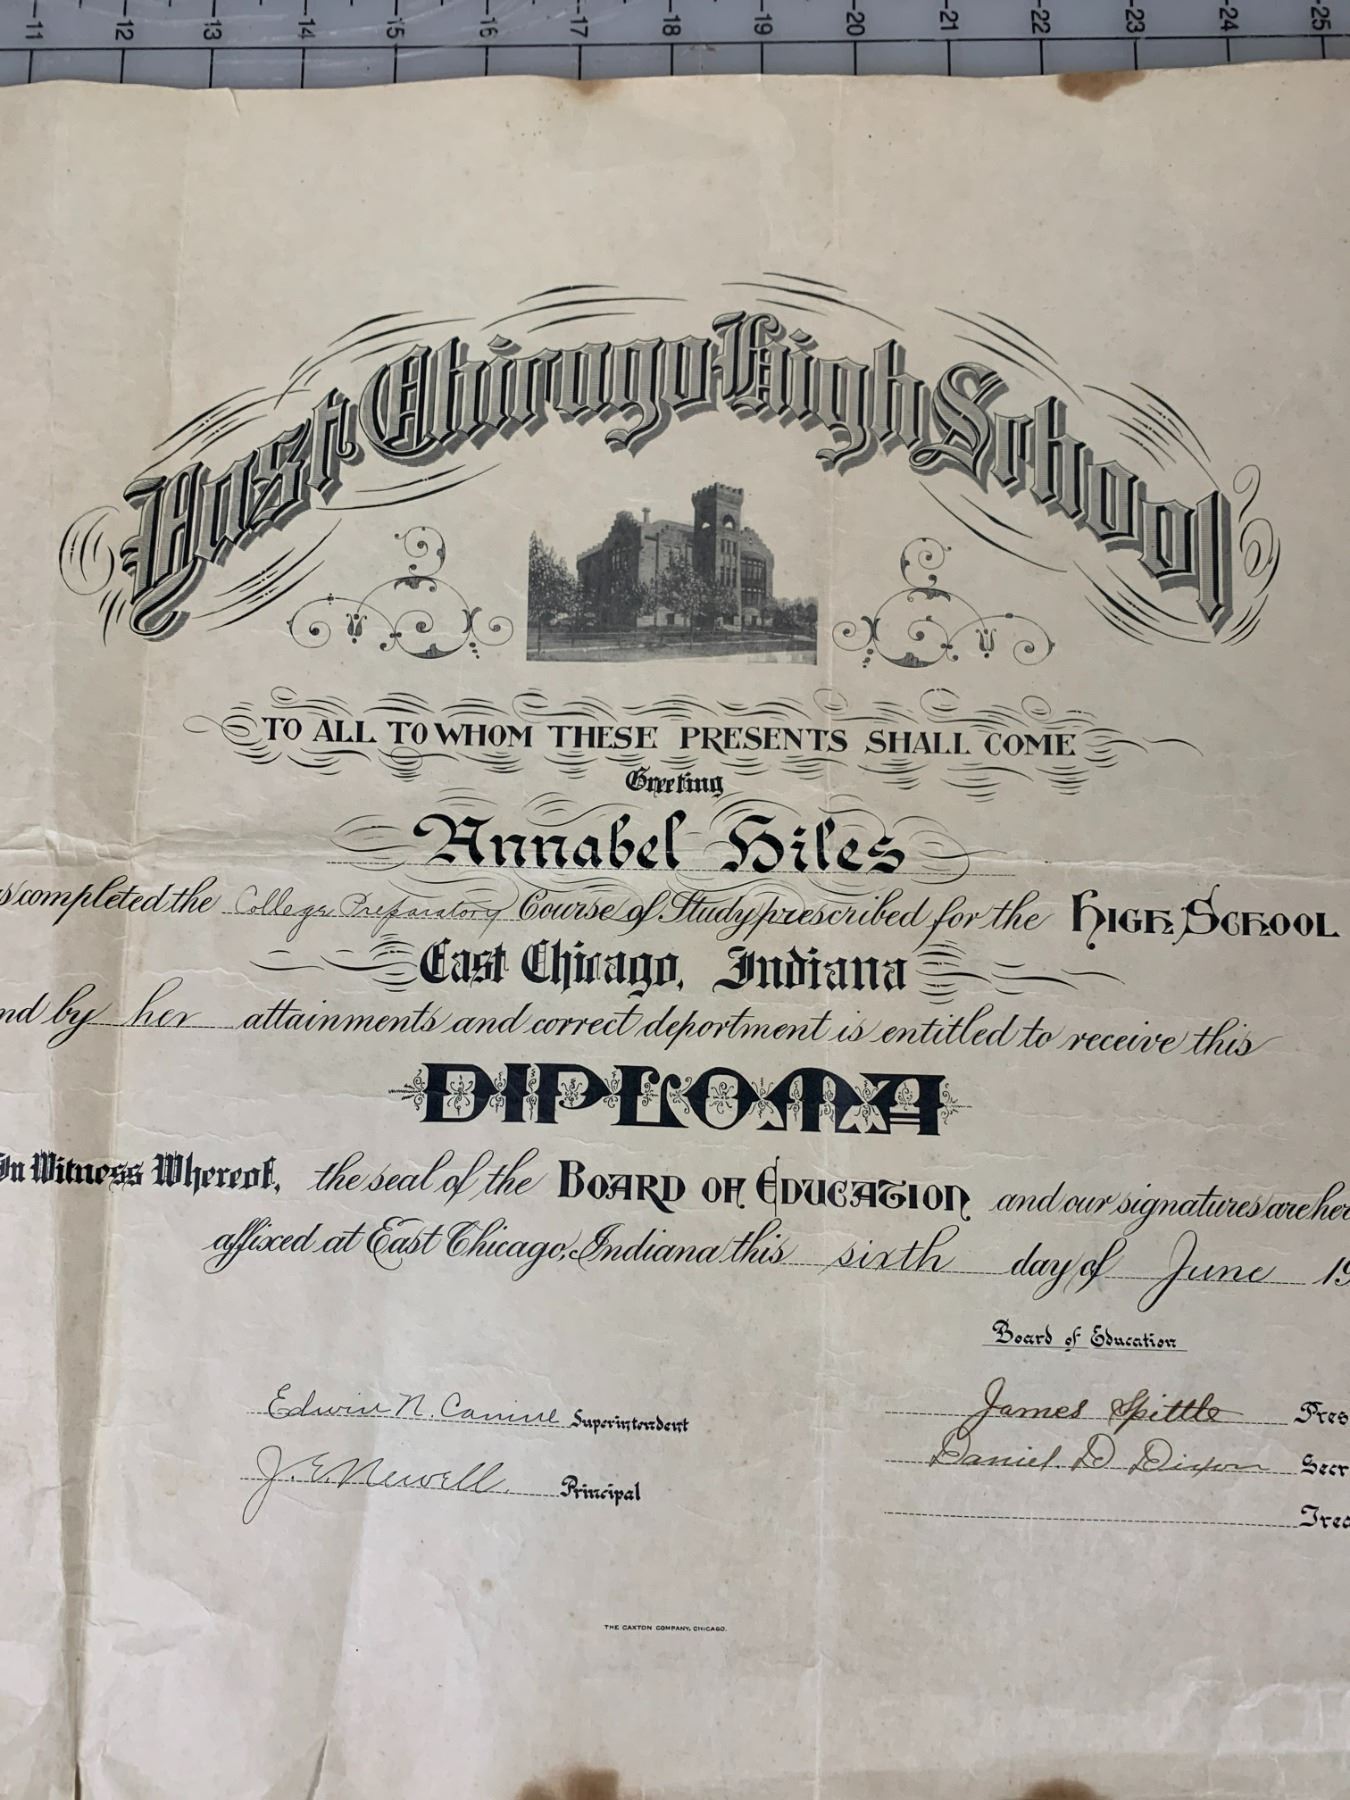 11 12 13 14 15 16 17 18 19 20 21 22 23 24 25
East Chicago High School
TO ALL TO WHOM THESE PRESENTS SHALL COME
Greeting
Annabel Hiles
s completed the College Preparatory Course of Study prescribed for the HIGH SCHOOL
East Chicago, Indiana
nd by her attainments and correct deportment is entitled to receive this
DIPLOMA
In Witness Whereof, the seal of the BOARD OF EDUCATION and our signatures are her
affixed at East Chicago, Indiana this sixth day of June 19
Board of Education
Edwin N. Canine Superintendent
James Spittle Pres
J. E. Newell. Principal
Daniel D Dixon Secr
Trea
THE CAXTON COMPANY, CHICAGO.